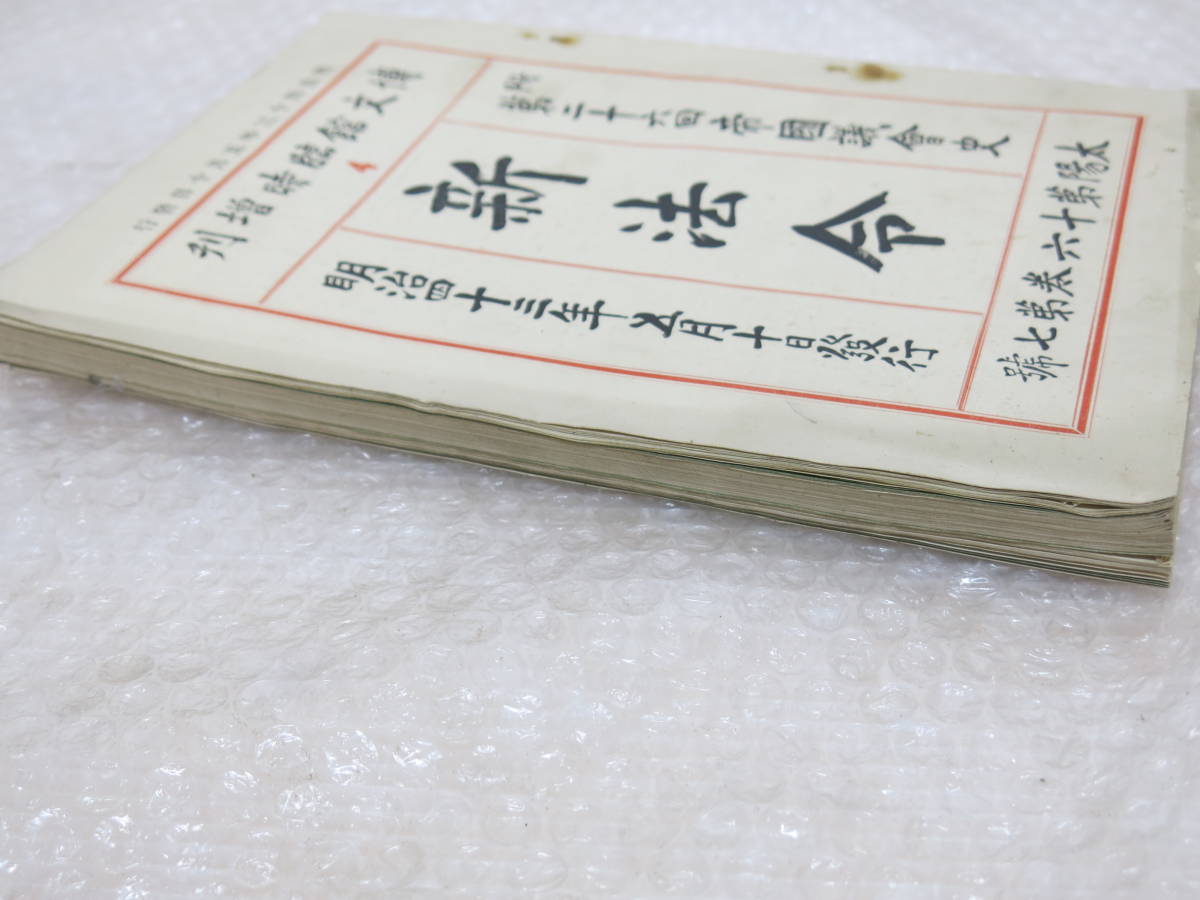 博文館臨時增刊
4
附第二十六回帝國議會史
新法令
明治四十三年五月十日發行
太陽第十六卷第七號